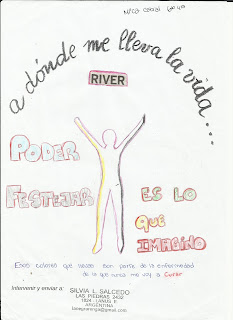 Mica Cabral
a dónde me lleva la vida...
RIVER
PODER
FESTEJAR
ES LO
QUE
IMAGINO
Esos colores que llevas son parte de la enfermedad
de la que nunca me voy a curar
Intervenir y enviar a:
SILVIA L. SALCEDO
LAS PIEDRAS 2432
1824 LANUS E
ARGENTINA